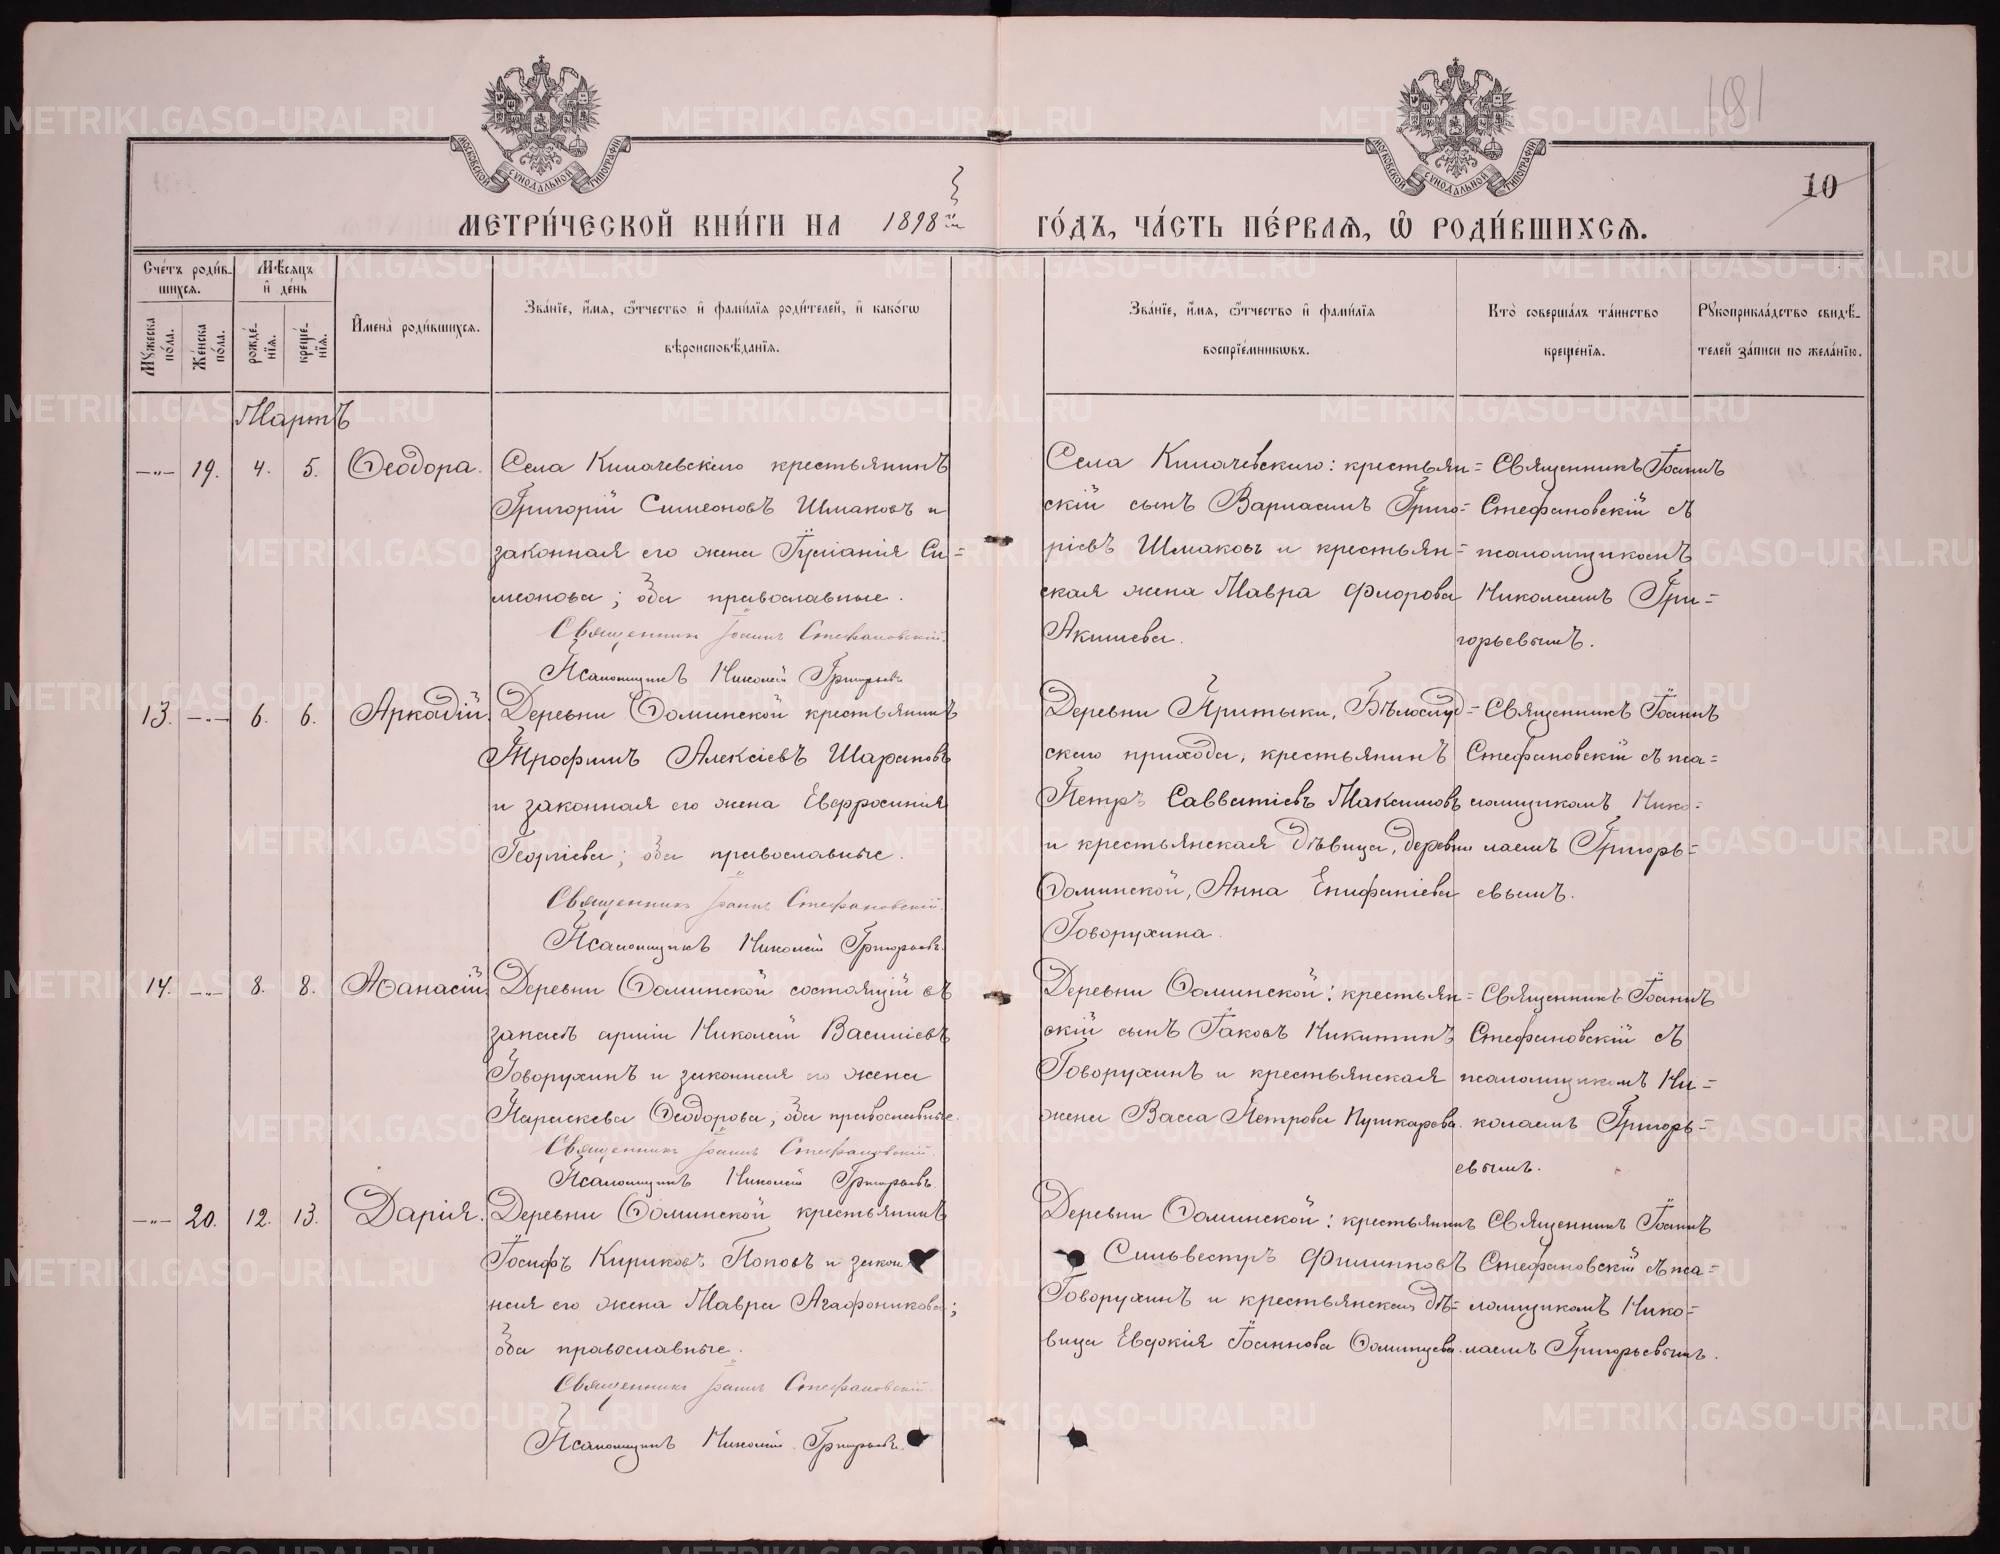 181
10
МОСКОВСКОЙ СѴНОДАЛЬНОЙ ТИПОГРАФІИ
МОСКОВСКОЙ СѴНОДАЛЬНОЙ ТИПОГРАФІИ
МЕТРИ́ЧЕСКОЙ КНИ́ГИ НА 1898й
ГО́ДЪ, ЧА́СТЬ ПЕ́РВАѦ, Ѽ РОДИ́ВШИХСѦ.
Сче́тъ роди́вшихся.
Мꙋжеска по́ла.
Же́нска по́ла.
Мѣ́сяцъ и де́нь
рожде́нїя.
креще́нїя.
Имена̀ роди́вшихся.
Зва́нїе, и́мя, ѻ́тчество и фами́лїя роди́телей, и како́гѡ
вѣроисповѣ́данїя.
Зва́нїе, и́мя, ѻ́тчество и фами́лїя
воспрїе́мникѡвъ.
Кто̀ соверша́лъ та́инство
креще́нїя.
Рꙋкоприкла́дство свидѣ́-
телей за́писи по жела́нїю.
Мартъ
—„— 19. 4. 5. Ѳеодора.
Села Килачевскаго крестьянинъ
Григорій Симеоновъ Шмаковъ и
законная его жена Іуліанія Си=
меонова; оба православные.
Священникъ Іоаннъ Стефановскій.
Псаломщикъ Николай Григорьевъ
Села Килачевскаго: крестьян=
скій сынъ Варлаамъ Григо=
ріевъ Шмаковъ и крестьян=
ская жена Мавра Флорова
Акишева.
Священникъ Іоаннъ
Стефановскій съ
псаломщикомъ
Николаемъ Гри=
горьевымъ.
13. —„— 6. 6. Аркадій.
Деревни Ѳоминской крестьянинъ
Трофимъ Алексіевъ Шараповъ
и законная его жена Евфросинія
Георгіева; оба православные.
Священникъ Іоаннъ Стефановскій.
Псаломщикъ Николай Григорьевъ.
Деревни Притыки, Бѣлослуд=
скаго прихода, крестьянинъ
Петръ Савватіевъ Максимовъ
и крестьянская дѣвица, деревни
Ѳоминской, Анна Епифаніева
Говорухина.
Священникъ Іоаннъ
Стефановскій съ пса=
ломщикомъ Нико=
лаемъ Григорь=
евымъ.
14. —„— 8. 8. Аѳанасій.
Деревни Ѳоминской состоящій въ
запасѣ арміи Николай Василіевъ
Говорухинъ и законная его жена
Параскева Ѳеодорова; оба православные.
Священникъ Іоаннъ Стефановскій.
Псаломщикъ Николай Григорьевъ
Деревни Ѳоминской: крестьян=
скій сынъ Іаковъ Никитинъ
Говорухинъ и крестьянская
жена Васса Петрова Пушкарева.
Священникъ Іоаннъ
Стефановскій съ
псаломщикомъ Ни=
колаемъ Григорь=
евымъ.
—„— 20. 12. 13. Дарія.
Деревни Ѳоминской крестьянинъ
Іосифъ Кириковъ Поповъ и закон
ная его жена Мавра Агафоникова;
оба православные.
Священникъ Іоаннъ Стефановскій.
Псаломщикъ Николай Григорьевъ.
Деревни Ѳоминской: крестьянинъ
Сильвестръ Филипповъ
Говорухинъ и крестьянская дѣ=
вица Евдокія Іоаннова Ѳоминцева.
Священникъ Іоаннъ
Стефановскій съ пса=
ломщикомъ Нико=
лаемъ Григорьевымъ.
METRIKI.GASO-URAL.RU